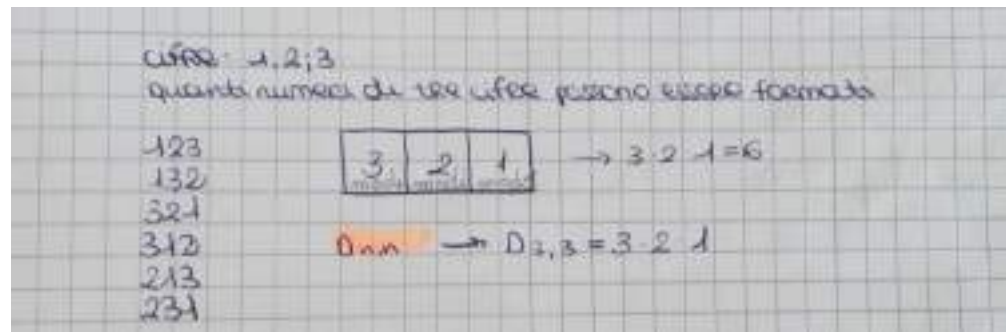 cifre: 1, 2; 3
quanti numeri di tre cifre possono essere formati
123
132
321
312
213
231
3 2 1 → 3·2·1=6
Dn,n → D3,3 = 3·2·1